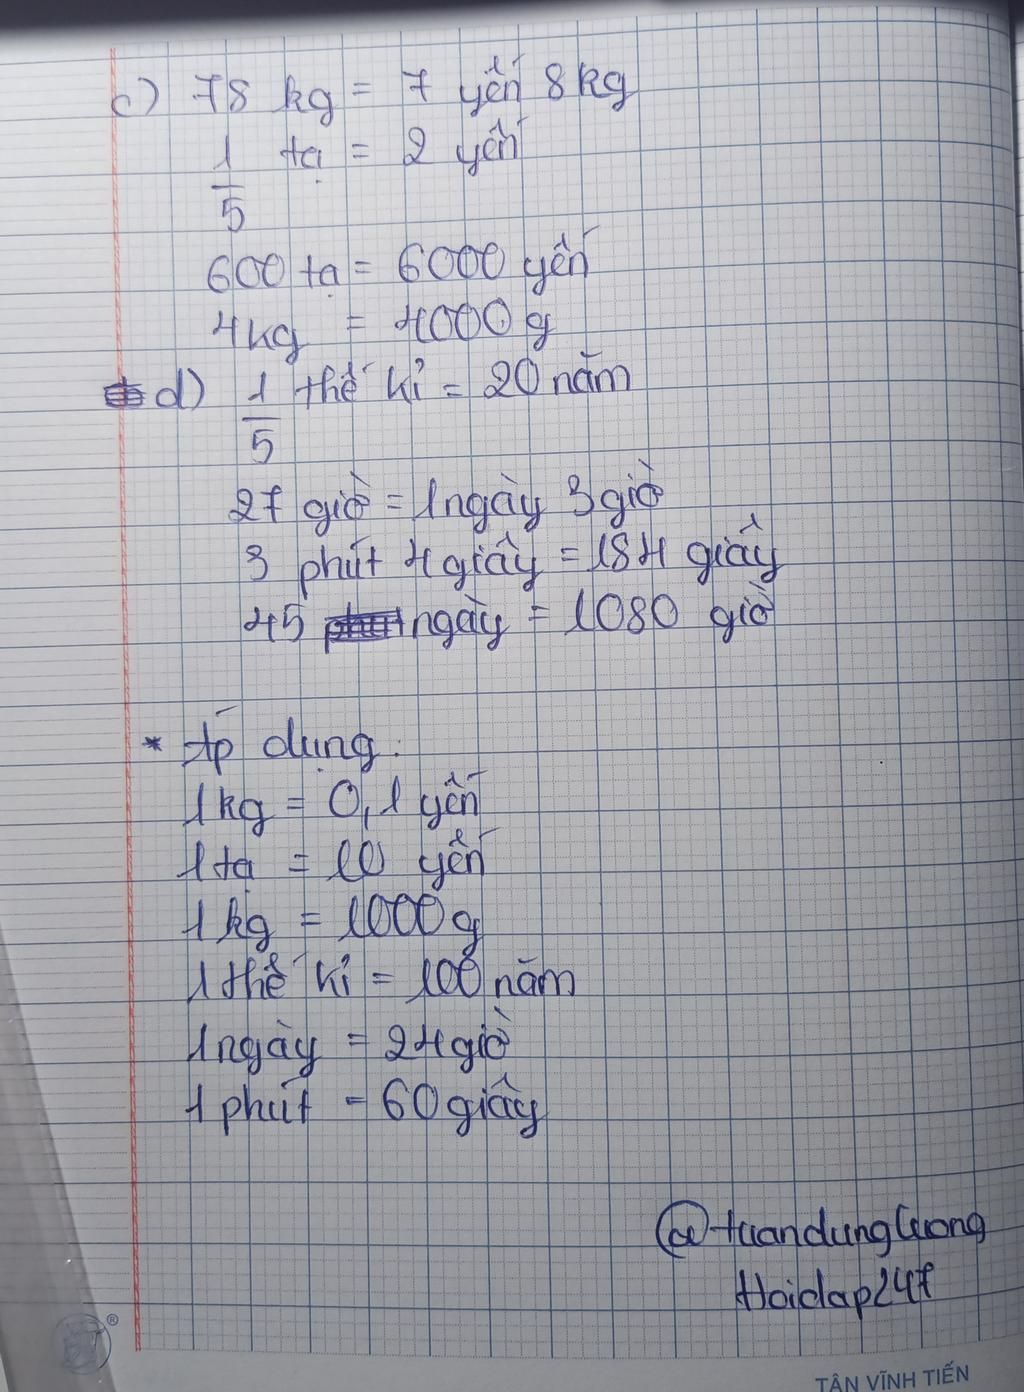 c) 78 kg = 7 yến 8 kg
1/5 tạ = 2 yến
600 tạ = 6000 yến
4kg = 4000 g
d) 1/5 thế kỉ = 20 năm
27 giờ = 1 ngày 3 giờ
3 phút 4 giây = 184 giây
45 ngày = 1080 giờ
* Áp dụng:
1 kg = 0,1 yến
1 tạ = 10 yến
1 kg = 1000 g
1 thế kỉ = 100 năm
1 ngày = 24 giờ
1 phút = 60 giây
@tuandungluong
Hoidap247
®
TÂN VĨNH TIẾN